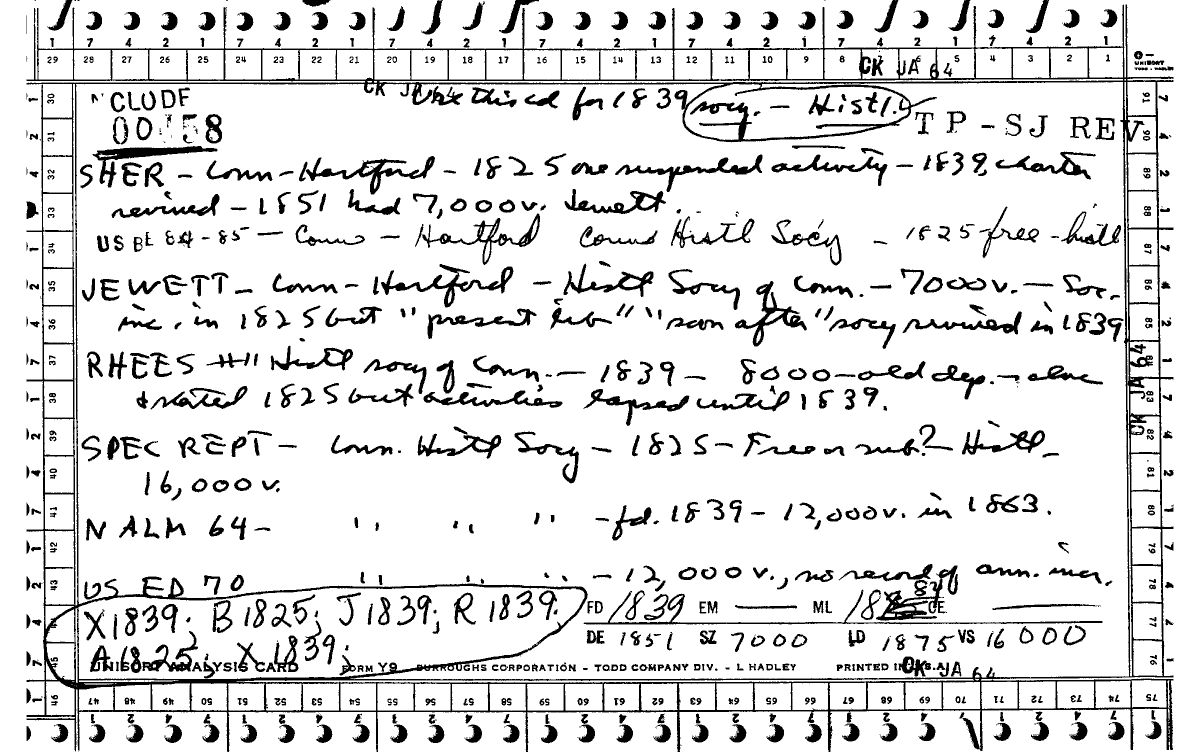 1 7 4 2 1 7 4 2 1 7 4 2 1 7 4 2 1 7 4 2 1 7 4 2 1 7 4 2 1
29 28 27 26 25 24 23 22 21 20 19 18 17 16 15 14 13 12 11 10 9 8 7 6 5 4 3 2 1
CK JA 64
UNISORT
CK JA 64
Use this cd for 1839 socy. - Histl.
CLUDE
00158
TP-SJ REV
SHER - Conn - Hartford - 1825 one suspended activity - 1839, charter
revived - 1851 had 7,000 v. Jewett.
US BE 84-85 - Conn - Hartford Conn Histl Socy - 1825 - free - histl
JEWETT - Conn - Hartford - Histl Socy of Conn. - 7000 v. - Soc.
inc. in 1825 but "present lib" "soon after" socy revived in 1839
RHEES - Histl socy of Conn. - 1839 - 8000 - old dep. - also
stated 1825 but activities lapsed until 1839.
SPEC REPT - Conn. Histl Socy - 1825 - Free or sub? - Histl -
16,000 v.
N ALM 64 - " " " - fd. 1839 - 12,000 v. in 1863.
US ED 70 " " " - 12,000 v., no record of ann. incr.
X1839; B1825; J1839; R1839;
A1825; X1839;
FD 1839 EM — ML CE —
DE 1851 SZ 7000 LD 1875 VS 16000
UNISORT ANALYSIS CARD FORM Y9 BURROUGHS CORPORATION - TODD COMPANY DIV. - L HADLEY PRINTED IN U.S.A.
CK JA 64
CK JA 64
30 31 32 33 34 35 36 37 38 39 40 41 42 43 44 45
91 90 89 88 87 86 85 84 83 82 81 80 79 78 77 76
46 47 48 49 50 51 52 53 54 55 56 57 58 59 60 61 62 63 64 65 66 67 68 69 70 71 72 73 74 75